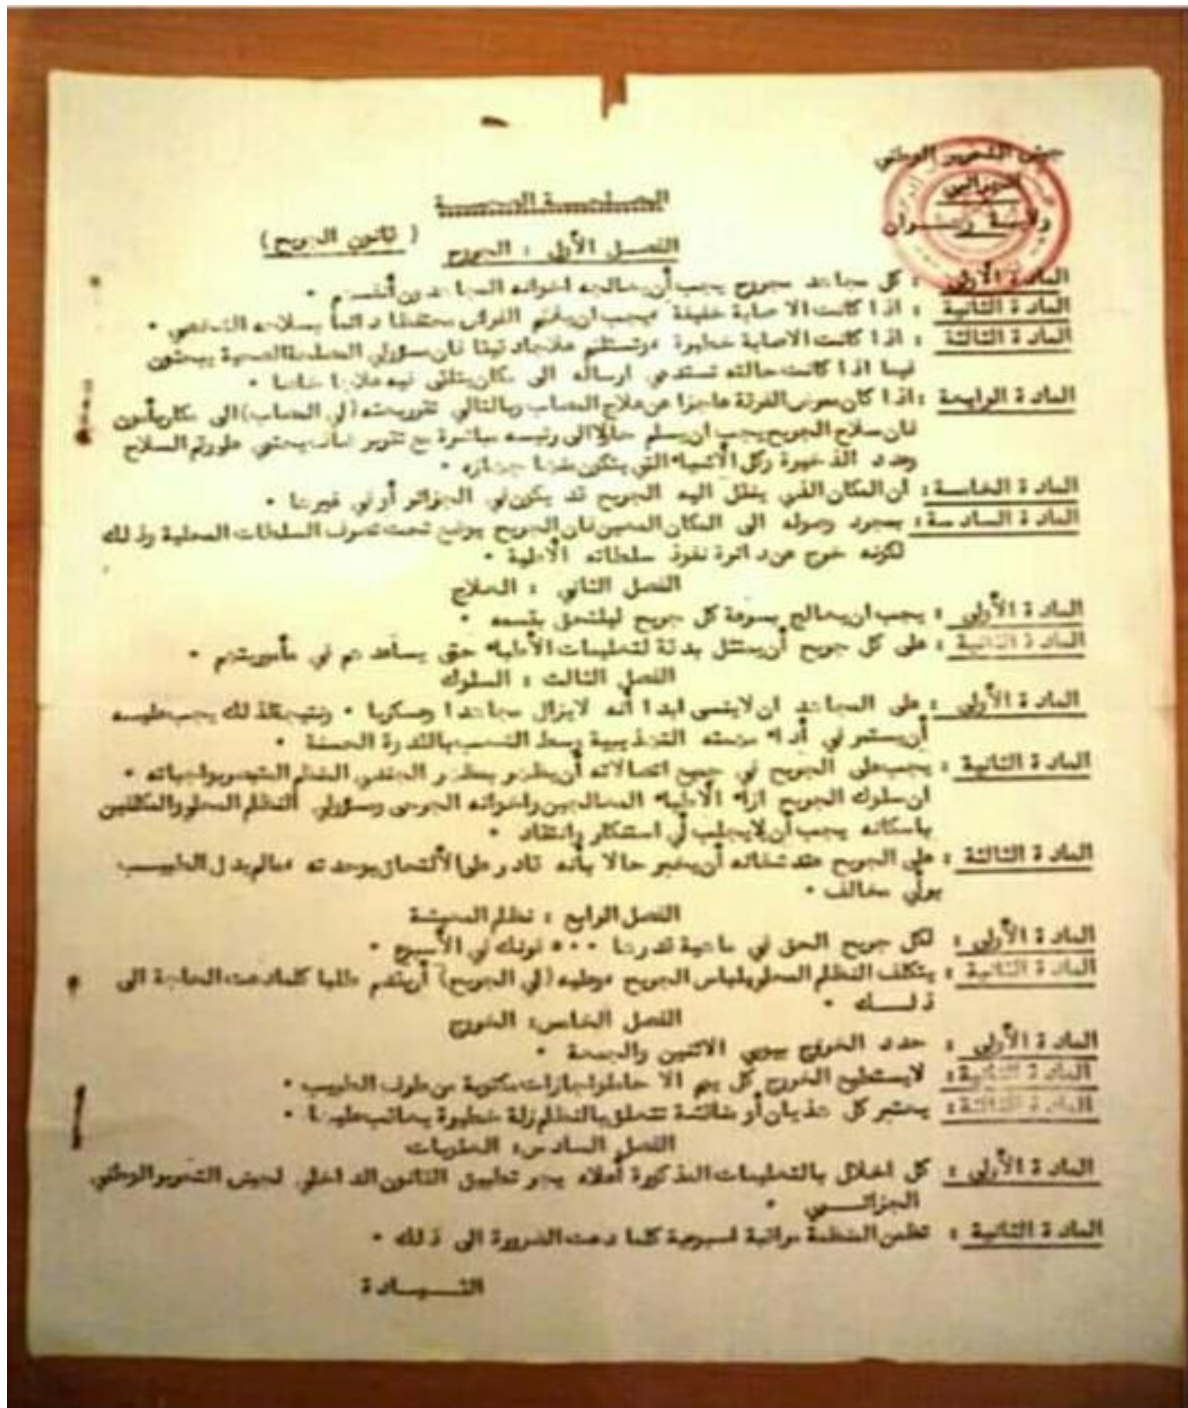 جيش التحرير الوطني
الجزائري
ولاية وهران
المصلحة الصحية
( قانون الجريح )
الفصل الأول : الجروح
المادة الأولى : كل مجاهد مجروح يجب أن يعالجه اخوانه المجاهدين أنفسهم •
المادة الثانية : اذا كانت الاصابة خفيفة فيجب ان يلزم الفراش محتفظا دائما بسلاحه الشخصي •
المادة الثالثة : اذا كانت الاصابة خطيرة وتستلزم علاجا دقيقا فان مسؤولي المصلحة الصحية يبحثون
فيما اذا كانت حالته تستدعي ارساله الى مكان يتلقى فيه علاجا خاصا •
المادة الرابعة : اذا كان ممرض الفرقة عاجزا عن علاج المصاب وبالتالي تقرر بعثه (أي المصاب) الى مكان مأمون
فان سلاح الجريح يجب ان يسلم حالا الى رئيسه مباشرة مع تقرير يحتوي على رقم السلاح
وعدد الذخيرة وكل الأشياء التي يتكون منها جهازه •
المادة الخامسة : ان المكان الذي ينقل اليه الجريح قد يكون في الجزائر أو في غيرها •
المادة السادسة : بمجرد وصوله الى المكان المعين فان الجريح يوضع تحت تصرف السلطات المحلية وذلك
لكونه خرج عن دائرة نفوذ سلطاته الأصلية •
الفصل الثاني : العلاج
المادة الأولى : يجب ان يعالج بسرعة كل جريح ليلتحق بقسمه •
المادة الثانية : على كل جريح أن يمتثل بدقة لتعليمات الأطباء حتى يساعدهم في مأموريتهم •
الفصل الثالث : السلوك
المادة الأولى : على المجاهد ان لاينسى ابدا أنه لايزال مجاهدا وعسكريا • ونتيجة لذلك يجب عليه
أن يستمر في أداء مهمته التهذيبية وسط الشعب بالقدرة الحسنة •
المادة الثانية : يجب على الجريح في جميع اتصالاته أن يظهر بمظهر الجندي المنظم البصير بواجباته •
ان سلوك الجريح ازاء الأطباء المعالجين واخوانه الجرحى ومسؤولي النظام المحلي والمكلفين
باسكانه يجب أن لايجلب أي استنكار وانتقاد •
المادة الثالثة : على الجريح عند شفائه أن يخبر حالا بأنه قادر على الألتحاق بوحدته مالم يدل الطبيب
برأي مخالف •
الفصل الرابع : نظام المعيشة
المادة الأولى : لكل جريح الحق في ماهية قدرها ٥٠٠ فرنك في الأسبوع •
المادة الثانية : يتكلف النظام المحلي بلباس الجريح وعليه (أي الجريح) أن يقدم طلبا كلما دعت الحاجة الى
ذلك •
الفصل الخامس : الخروج
المادة الأولى : حدد الخروج بيومي الاثنين والجمعة •
المادة الثانية : لايستطيع الخروج كل يوم الا حاملو اجازات مكتوبة من طرف الطبيب •
المادة الثالثة : يعتبر كل هذيان أو مناقشة تتعلق بالنظام زلة خطيرة يعاقب عليها •
الفصل السادس : العقوبات
المادة الأولى : كل اخلال بالتعليمات المذكورة أعلاه يجر تطبيق القانون الداخلي لجيش التحرير الوطني
الجزائري •
المادة الثانية : تظمن المنظمة مراقبة اسبوعية كلما دعت الضرورة الى ذلك •
القيادة